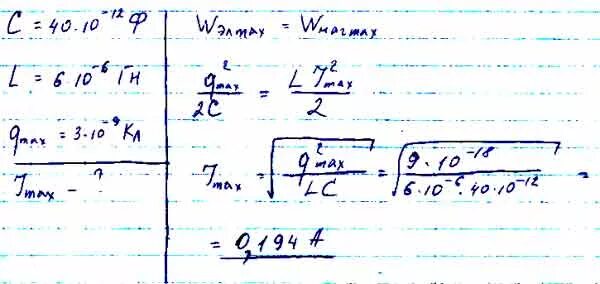 C = 40·10⁻¹² Ф
L = 6·10⁻⁶ Гн
qmax = 3·10⁻⁹ Кл
Imax - ?
Wэлmax = Wмагmax
q²max / 2C = L I²max / 2
Imax = √(q²max / LC) = √(9·10⁻¹⁸ / 6·10⁻⁶·40·10⁻¹²) =
= 0,194 A